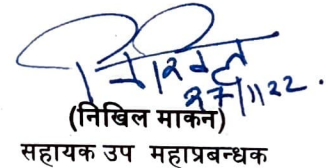 निखिल
27/11/22.
(निखिल माकन)
सहायक उप महाप्रबन्धक